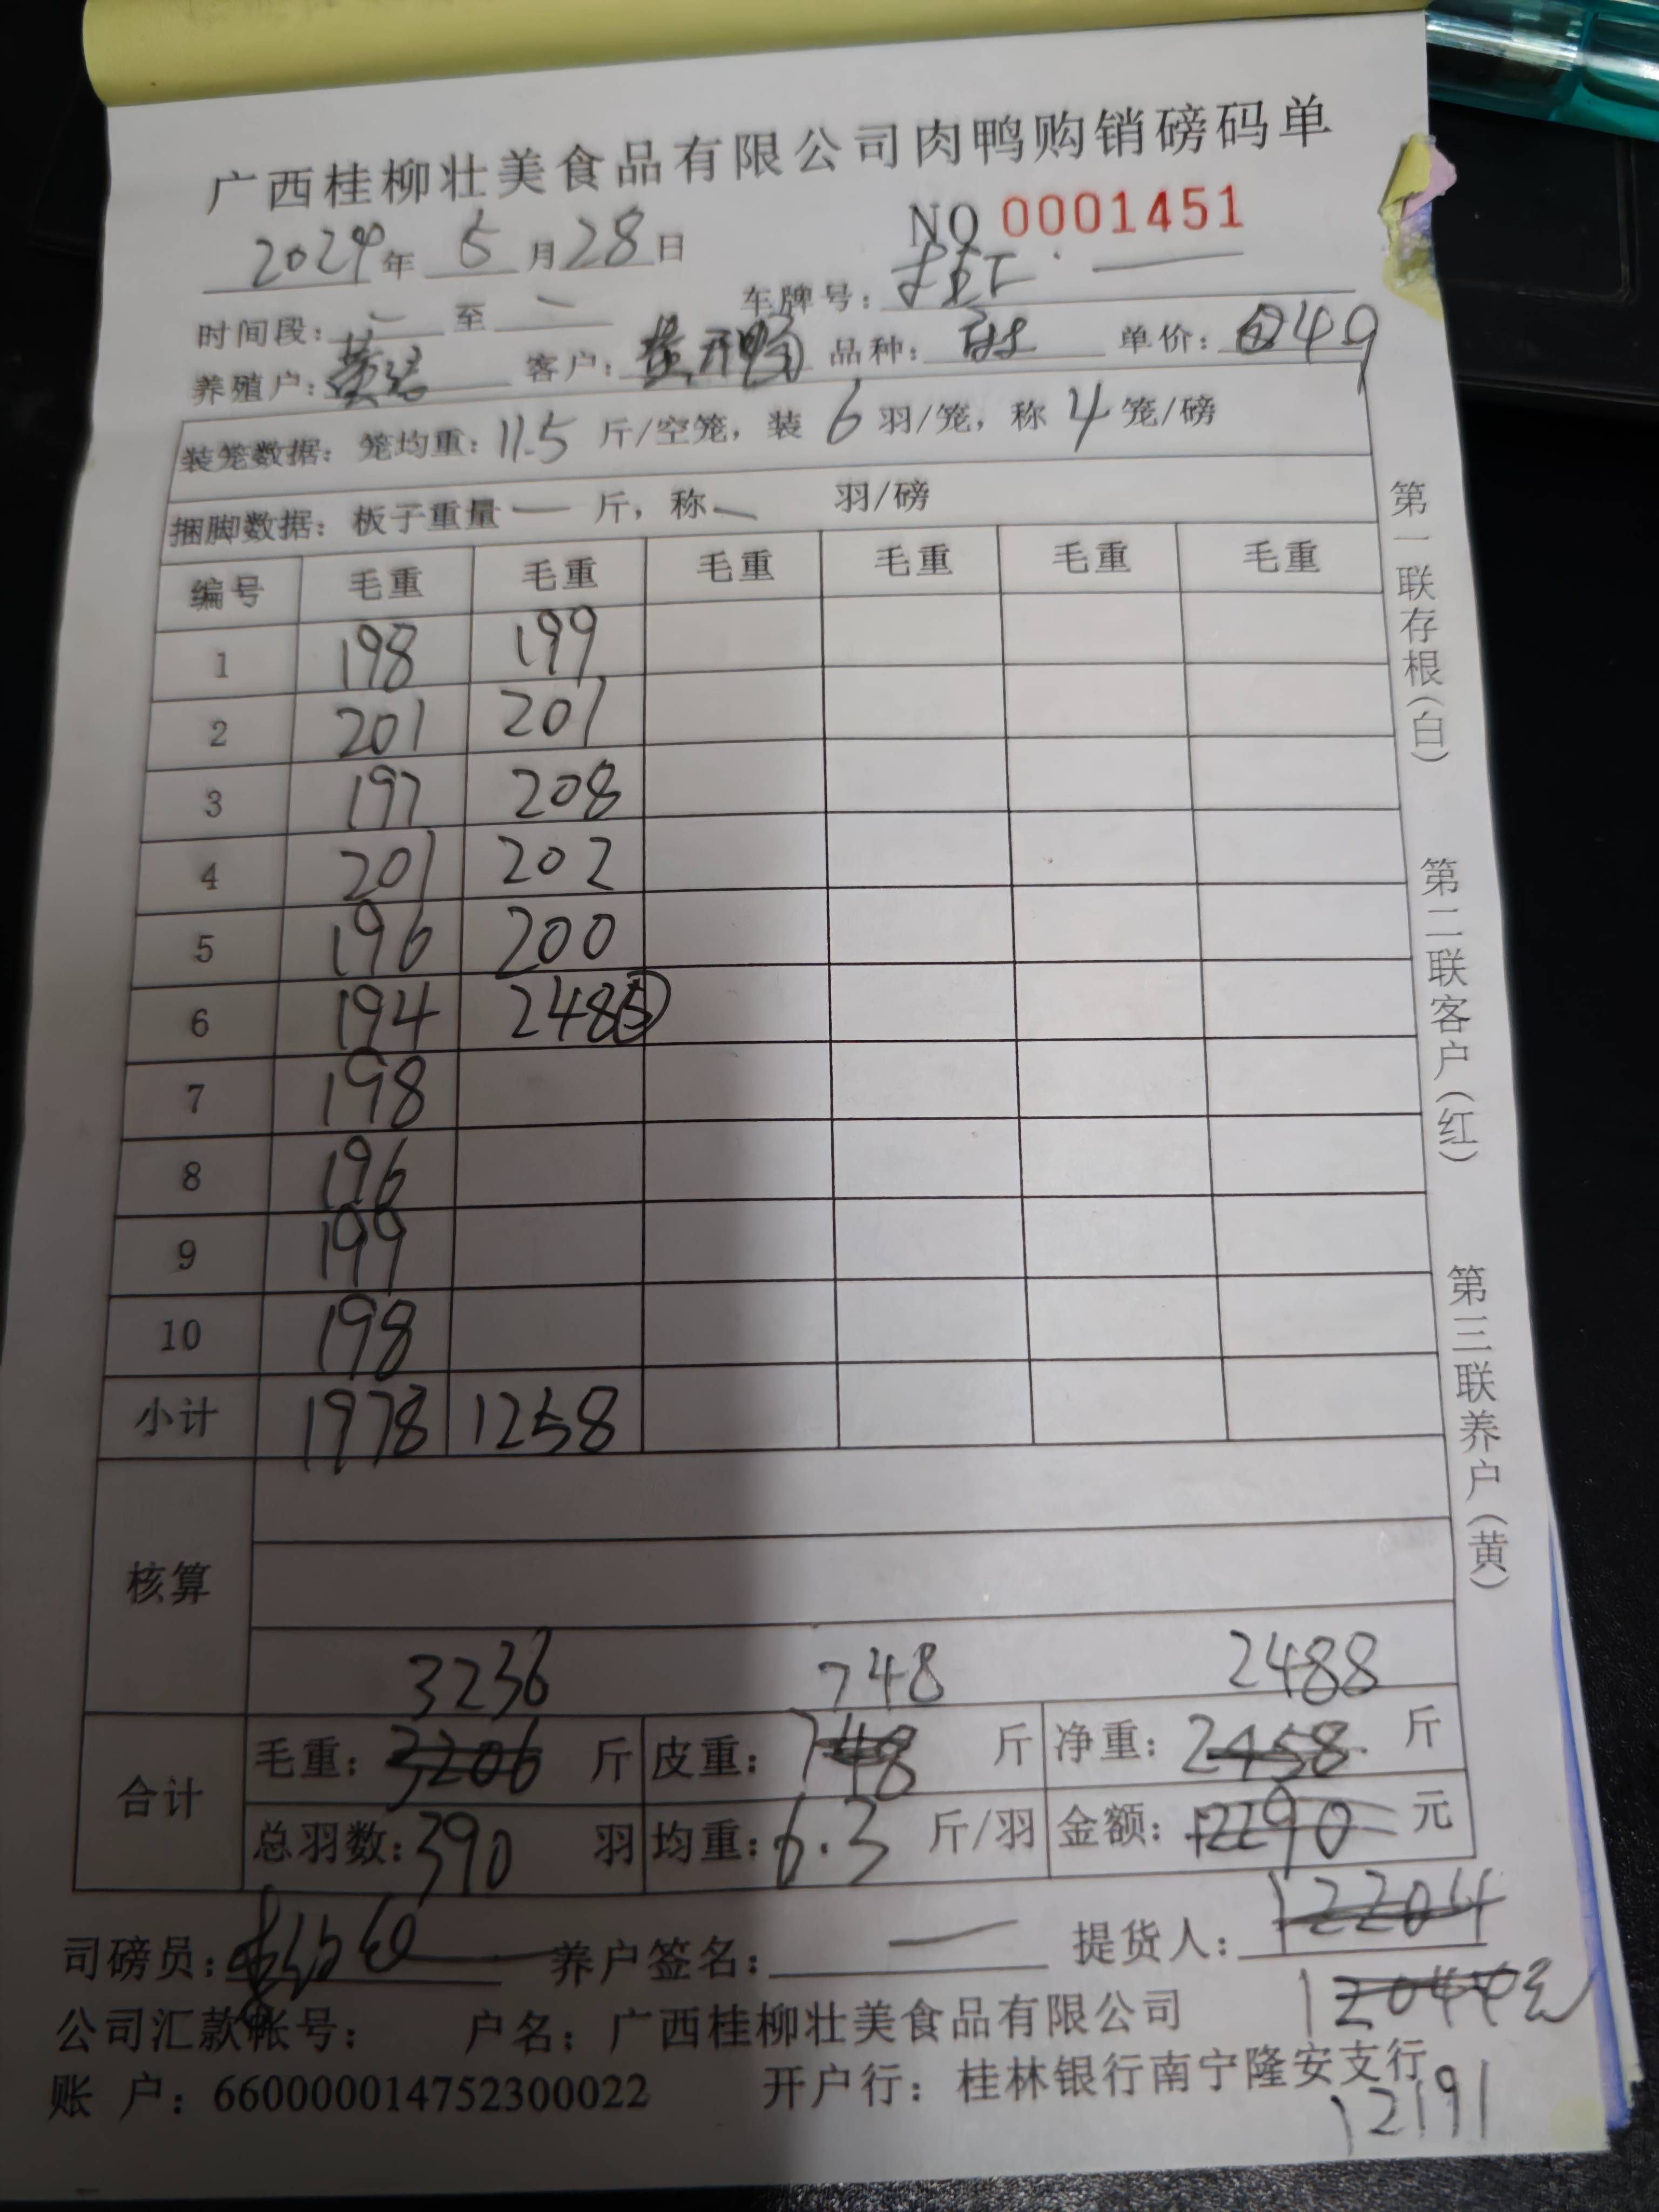 广西桂柳壮美食品有限公司肉鸭购销磅码单
NO 0001451
2024年 5 月 28 日
时间段: — 至 — 车牌号:
养殖户: 黄 客户: 黄 品种: 单价: 49
装笼数据: 笼均重: 11.5 斤/空笼, 装 6 羽/笼, 称 4 笼/磅
捆脚数据: 板子重量 — 斤, 称 — 羽/磅
编号 毛重 毛重 毛重 毛重 毛重 毛重
1 198 199
2 201 201
3 197 208
4 201 202
5 196 200
6 194 248⑤
7 198
8 196
9 199
10 198
小计 1978 1258
核算
3236 748 2488
合计 毛重: 3206 斤 皮重: 748 斤 净重: 2458 斤
总羽数: 390 羽 均重: 6.3 斤/羽 金额: 12290 元
12204
司磅员: 养户签名: — 提货人:
12044元
公司汇款帐号: 户名: 广西桂柳壮美食品有限公司
账 户: 660000014752300022 开户行: 桂林银行南宁隆安支行
12191
第一联存根(白)
第二联客户(红)
第三联养户(黄)